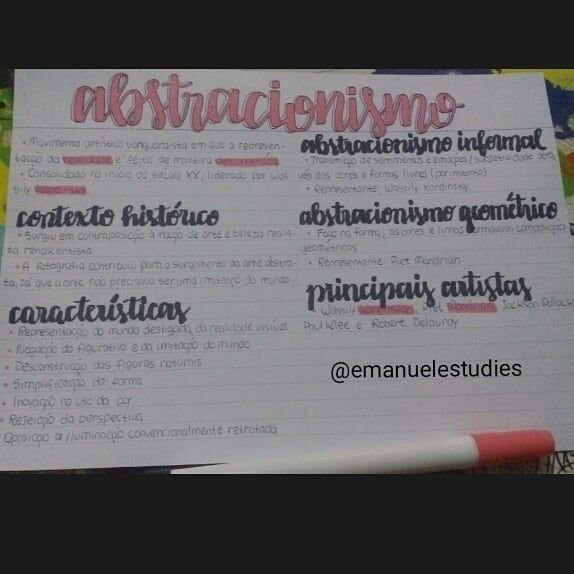 abstracionismo
• Movimento artístico vanguardista em que a represen-
tação da realidade é feita de maneira desconstruída
• Consolidado no início do século XX, liderado por Was-
sily Kandinsky.
contexto histórico
• Surgiu em contraposição à noção de arte e beleza realis-
ta renascentista
• A fotografia contribuiu para o surgimento da arte abstra-
ta, já que a arte não precisava ser uma imitação do mundo
características
• Representação do mundo desligada da realidade visível
• Negação do figurativo e da imitação do mundo
• Desconstrução das figuras naturais
• Simplificação da forma
• Inovação no uso da cor
• Rejeição da perspectiva
Oposição a iluminação convencionalmente retratada
abstracionismo informal
• Transmição de sentimentos e emoções/subjetividade atra
vés das cores e formas livres (por instinto)
• Representante: Wassily Kandinsky.
abstracionismo geométrico
• Foco na forma, as cores e linhas formavam composições
geométricas
• Representante Piet Mondrian
principais artistas
• Wassily Kandinsky, Piet Mondrian, Jackson Pollock
Paul Klee e Robert Delaunay
@emanuelestudies